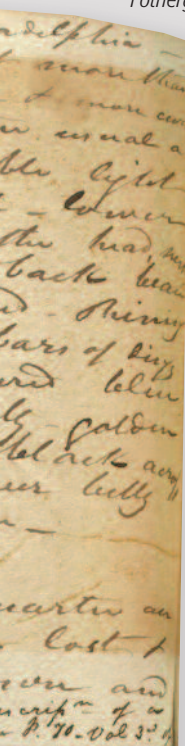 Fotherg
adelphia —
more than
& more cur
usual a
ble light
– lower
the head, nec
back bea
d – Shining
bars of ding
red blue
ly – golden
black across
er belly
n —
quarter an
lost &
own and
scrip.n of a
P. 70 – Vol 3.d